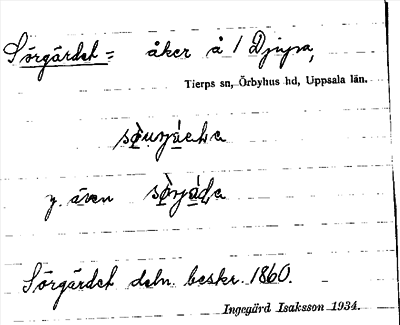 Sörgärdet = åker å / Djupa,
Tierps sn, Örbyhus hd, Uppsala län.
y. även
Sörgärdet deln. beskr. 1860.
Ingegärd Isaksson 1934.